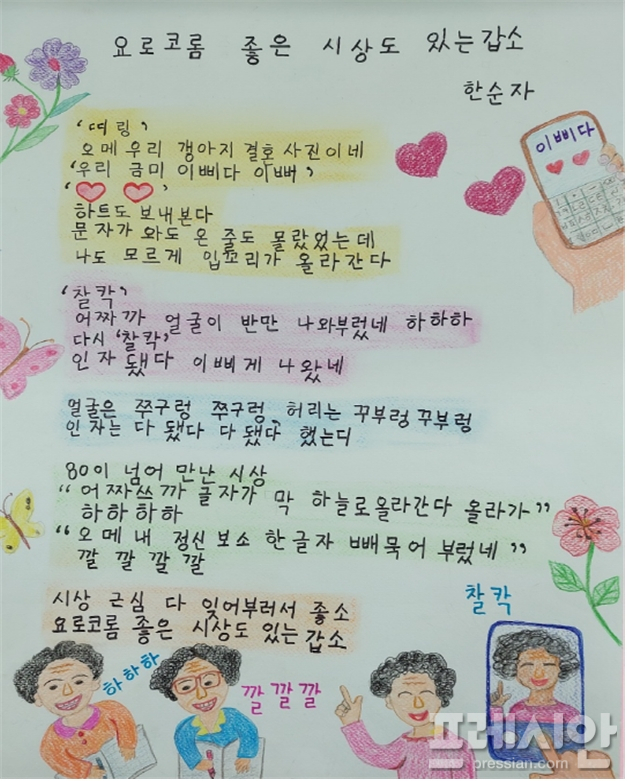 요로코롬 좋은 시상도 있는갑소
한순자
이삐다
'띠링'
오메 우리 갱아지 결혼사진이네
'우리 금미 이삐다 이뻐'
'♥ ♥'
하트도 보내본다
문자가 와도 온 줄도 몰랐었는데
나도 모르게 입꼬리가 올라간다
'찰칵'
어짜까 얼굴이 반만 나와부렀네 하하하
다시 '찰칵'
인자 됐다 이삐게 나왔네
얼굴은 쭈구렁 쭈구렁, 허리는 꾸부렁 꾸부렁
인자는 다 됐다 다 됐다 했는디
80이 넘어 만난 시상
"어짜쓰까 글자가 막 하늘로올라간다 올라가"
하하하하
"오메 내 정신 보소 한글자 빼묵어 부렀네"
깔 깔 깔 깔
시상 근심 다 잊어부러서 좋소
요로코롬 좋은 시상도 있는 갑소
찰칵
하하하
깔깔깔
프레시안
pressian.com